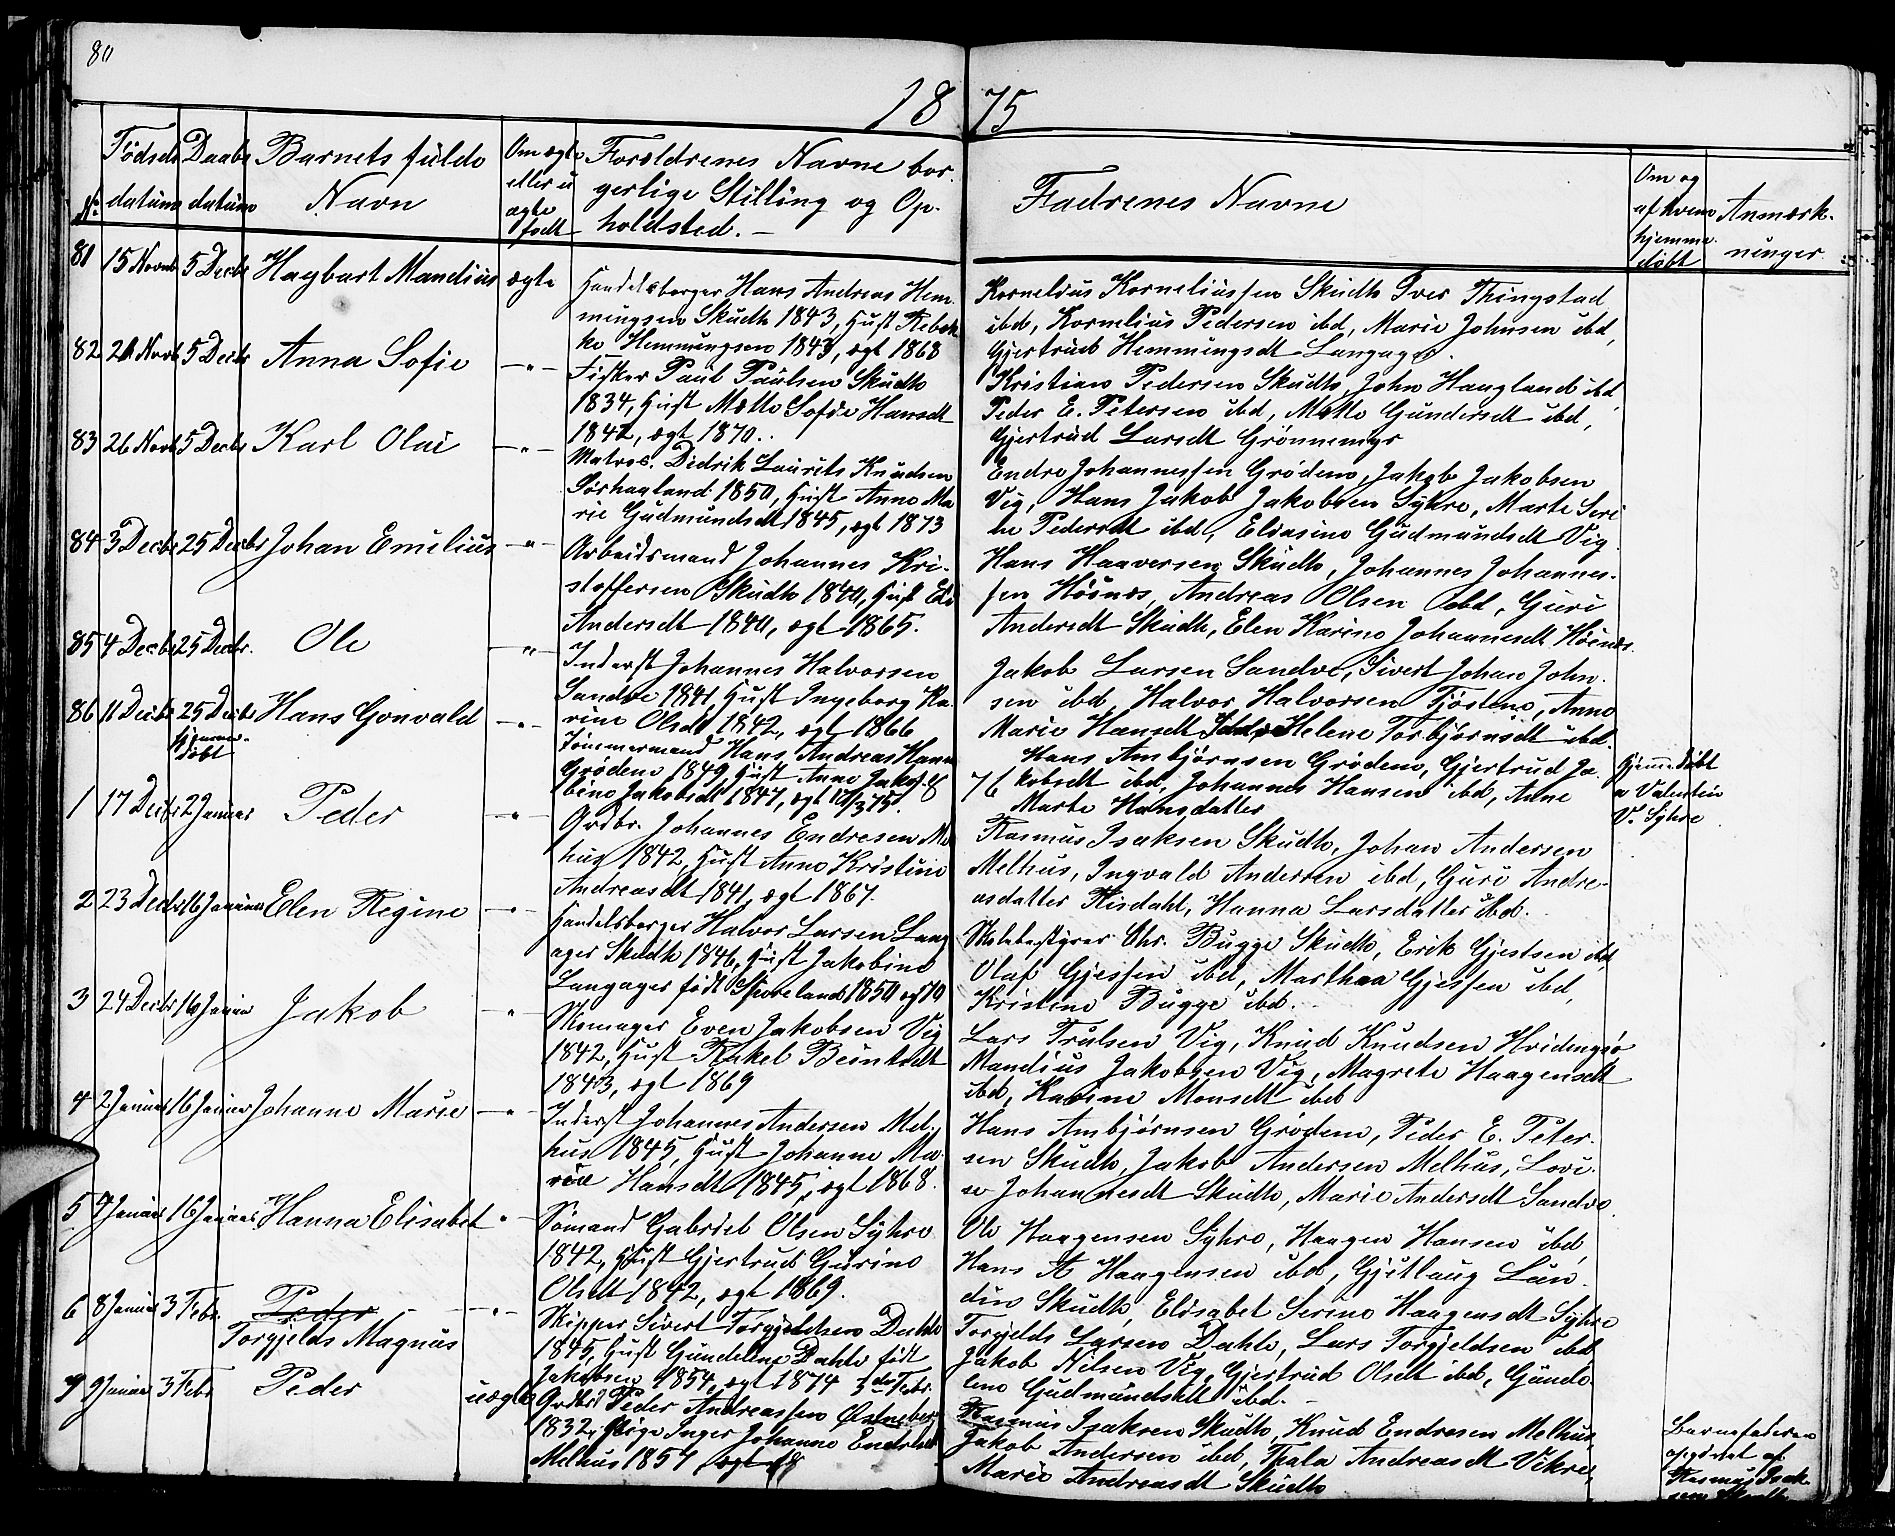 80
18 75
No Födsels datum Daabs datum Barnets fulde Navn Om ægte eller uægte født Forældrenes Navne borgerlige Stilling og Opholdsted. Fadrenes Navne Om og af hvem hjemmedøbt Anmærkninger
81 15 Novb 5 Decbr Hagbart Mandius ægte
Handelsborger Hans Andreas Hem-
mingsen Skudh 1843, Hust Rebek-
ke Hemmingsen 1843, ægt 1868
Kornelius Korneliussen Skudh Iver Thingstad
ibd, Kornelius Pedersen ibd, Marie Johnsen ibd,
Gjertrud Hemmingsdt Langager.
82 20 Novb 5 Decbr Anna Sofie -"-
Fisker Paul Paulsen Skudh
1834, Hust Mette Sofie Hansdt
1842, ægt 1870.
Kristian Pedersen Skudh, John Haugland ibd,
Peder E. Petersen ibd, Mette Gundersdt ibd,
Gjertrud Larsdt Grønnemyr
83 26 Novb 5 Decbr Karl Olai -"-
Matros. Didrik Laurits Knudsen
Sørhagland 1850, Hust Anne Ma
rie Gudmundsdt 1845, ægt 1873
Endre Johannessen Grødem, Jakob Jakobsen
Vig, Hans Jakob Jakobsen Syhre, Marte Seri
ne Pedersdt ibd, Eliasine Gudmundsdt Vig
84 3 Decbr 25 Decbr Johan Emilius -"-
Arbeidsmand Johannes Kri-
stoffersen Skudh 1840, Hust Eli
Andersdt 1840, ægt 1865.
Hans Haaversen Skudh, Johannes Johannes-
sen Høines, Andreas Olsen ibd, Guri
Andersdt Skudh, Elen Karine Johannesdt Høines
85 4 Decbr 25 Decbr. Ole -"-
Inderst Johannes Halvorsen
Sandve 1841, Hust Ingeborg Ka-
rine Olsdt 1842, ægt 1866
Jakob Larsen Sandve, Sivert Johan John-
sen ibd, Halvor Halvorsen Fjøsteno, Anne
Marie Hansdt Helene Torbjørnsdt ibd.
86 11 Decbr 25 Decbr Hans Gonvald -"-
hjemmedøbt
Tømmermand Hans Andreas Hans
Grødem 1849, Hust Anne Jako-
bine Jakobsdt 1847, ægt 10/3 75.
Hans Ambjørnsen Grødem, Gjertrud Ja-
kobsdt ibd, Johannes Hansen ibd, Anne
Marte Hansdatter
Hjemmedøbt
a Valentin
V. Syhre
76
1 17 Decbr 2 Januar Peder -"-
Grdbr. Johannes Endresen Me
hus 1842, Hust Anne Kristine
Andreasdt 1841, ægt 1867.
Rasmus Isaksen Skudh, Johan Andersen
Melhus, Ingvald Andersen ibd, Guri Andre-
asdatter Risdahl, Hanna Larsdatter ibd.
2 23 Decbr 16 Januar Elen Regine -"-
Handelsborger Halvor Larsen Lang
ager Skudh 1846, Hust Jakobine
Langager født Sporeland 1850 ægt 70
Skolebestyrer Chr. Bugge Skudh, Erik Gjestsen ibd,
Olaf Gjessen ibd, Marthea Gjessen ibd,
Kristine Bugge ibd.
3 24 Decbr 16 Januar Jakob -"-
Skomager Even Jakobsen Vig
1842, Hust Rakel Beintsdt
1843, ægt 1869
Lars Trulsen Vig, Knud Knudsen Hvidingsø
Mandius Jakobsen Vig, Magrete Haagensdt
ibd, Karine Monsdt ibd
4 2 Januar 16 Januar Johanne Marie -"-
Inderst Johannes Andersen Mel-
hus 1845, Hust Johanne Ma-
rie Hansdt 1845, ægt 1868.
Hans Ambjørnsen Grødem, Peder E. Peter-
sen Skudh, Jakob Andersen Melhus, Lovi-
se Johannesdt Skudh, Marie Andersdt Sandve.
5 7 Januar 16 Januar Hanna Elisabet "-
Sömand Gabriel Olsen Syhre
1842, Hust Gjertrud Gurine
Olsdt 1842, ægt 1869.
Ole Haagensen Syhre, Haagen Hansen ibd,
Hans A Haagensen ibd, Gjetlaug Lun-
din Skudh, Elisabet Serine Haagensdt Syhre
6 8 Januar 3 Febr. Peder -"-
Torgjelds Magnus
Skipper Sivert Torgjeldsen Dahle
1845, Hust Gundeline Dahle født
Jakobsen 1854, ægt 1874
Torgjelds Larsen Dahle, Lars Torgjeldsen ibd
Jakob Nilsen Vig, Gjertrud Olsdt ibd, Gunde-
line Gudmundsdt ibd.
7 9 Januar 3 Febr Peder uægte
Grdbr Peder Andreassen Østnebø
1832, Pige Inger Johanne Endresdt
Melhus 1857
Rasmus Isaksen Skudh, Knud Endresen Melhus,
Jakob Andersen ibd, Thala Andreasdt Vikre,
Marie Andreasdt Skudh
Barnefaderen
opgivet af
Rasmus Isak-
sen Skudh